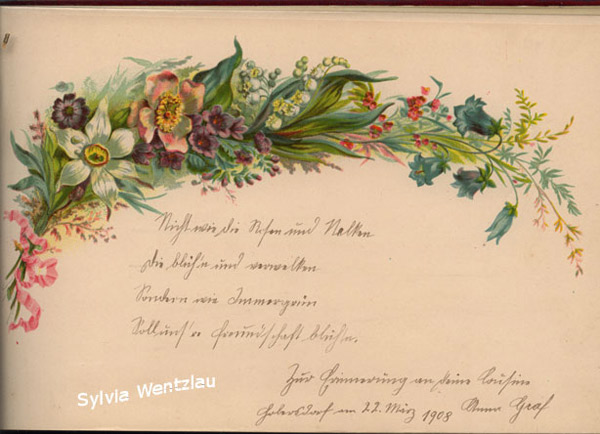 8
Nicht wie die Rosen und Nelken
Die blüh'n und verwelken
Sondern wie Immergrün
Soll uns're Freundschaft blüh'n.
Zur Erinnerung an deine Cousine
am 22. März 1908 Anna Graf
Sylvia Wentzlau